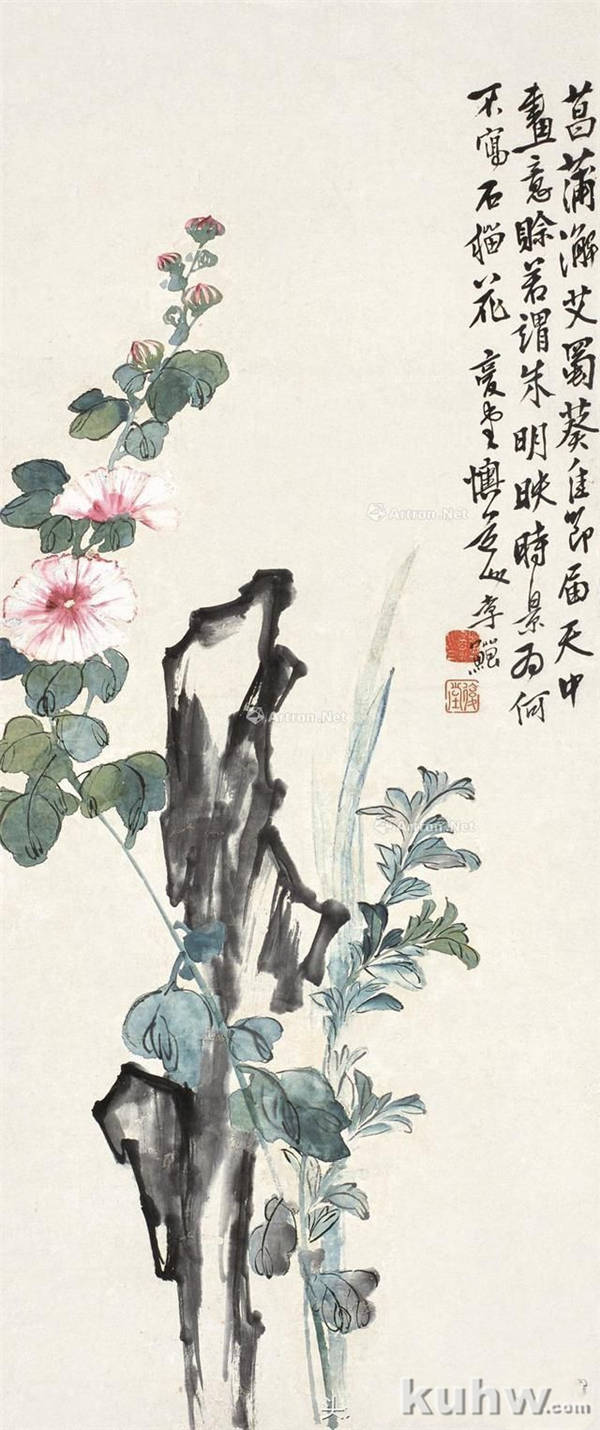 菖蒲澥艾蜀葵佳節届天中
畫意賒若謂朱明映時景为何
不寫石榴花 復堂懊道人李鱓
復堂
Artron.Net
Artron.Net
Artron.Net
头
kuhw.com